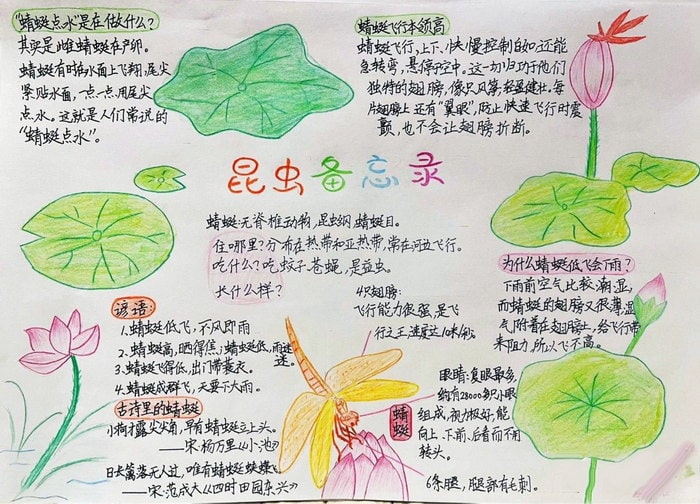 "蜻蜓点水"是在做什么?
其实是雌蜻蜓在产卵。
蜻蜓有时在水面上飞翔,尾尖
紧贴水面,一点一点用尾尖
点水。这就是人们常说的
"蜻蜓点水"。
蜻蜓飞行本领高
蜻蜓飞行,上下、快慢控制自如,还能
急转弯,悬停空中。这一切归功于他们
独特的翅膀,像只风筝,轻盈健壮。每
片翅膀上还有"翼眼",防止快速飞行时震
颤,也不会让翅膀折断。
昆虫备忘录
蜻蜓:无脊椎动物,昆虫纲,蜻蜓目。
住哪里?分布在热带和亚热带,常在河边飞行。
吃什么?吃蚊子苍蝇,是益虫。
长什么样?
4只翅膀:
飞行能力很强,是飞
行之王,速度达10米/秒。
为什么蜻蜓低飞会下雨?
下雨前空气比较潮湿,
而蜻蜓的翅膀又很薄,湿
气附着在翅膀上,给飞行带
来阻力,所以飞不高。
谚语:
1.蜻蜓低飞,不风即雨
2.蜻蜓高,晒得焦;蜻蜓低,雨迷
迷。
3.蜻蜓飞得低,出门带蓑衣。
4.蜻蜓成群飞,天要下大雨。
古诗里的蜻蜓
小荷才露尖尖角,早有蜻蜓立上头。
——宋·杨万里《小池》
日长篱落无人过,唯有蜻蜓蛱蝶飞
——宋·范成大《四时田园杂兴》
蜻蜓
眼睛:复眼最多,
约有28000多只小眼
组成,视力极好,能
向上、下、前、后看而不用
转头。
6条腿,腿部有毛刺。